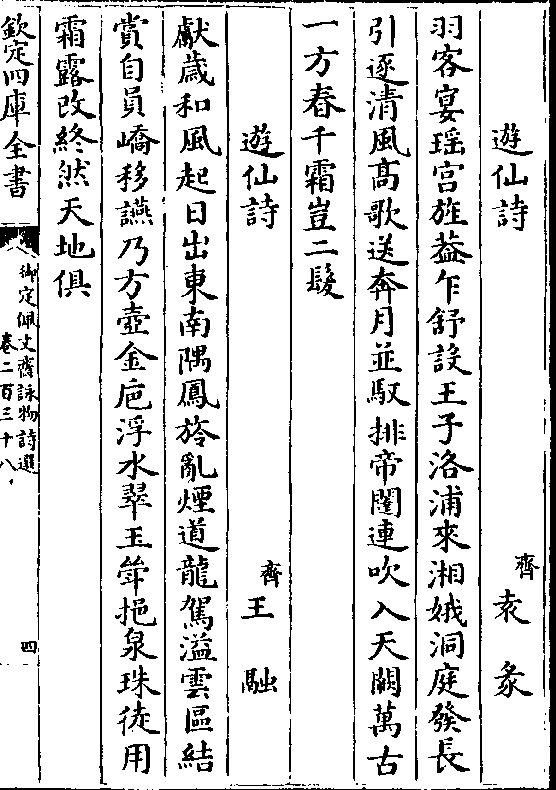 遊仙詩　齊袁彖
羽客宴瑶宫旌葢乍舒設王子洛浦來湘娥洞庭發長
引逐清風髙歌送奔月並馭排帝閽連吹入天闕萬古
一方春千霜豈二髮
遊仙詩　齊王融
獻歲和風起日出東南隅鳳旍亂煙道龍駕溢雲區結
賞自員嶠移讌乃方壺金巵浮水翠玉斝挹泉珠徒用
霜露改終然天地俱
欽定四庫全書
御定佩文齋詠物詩選
卷二百三十八
四